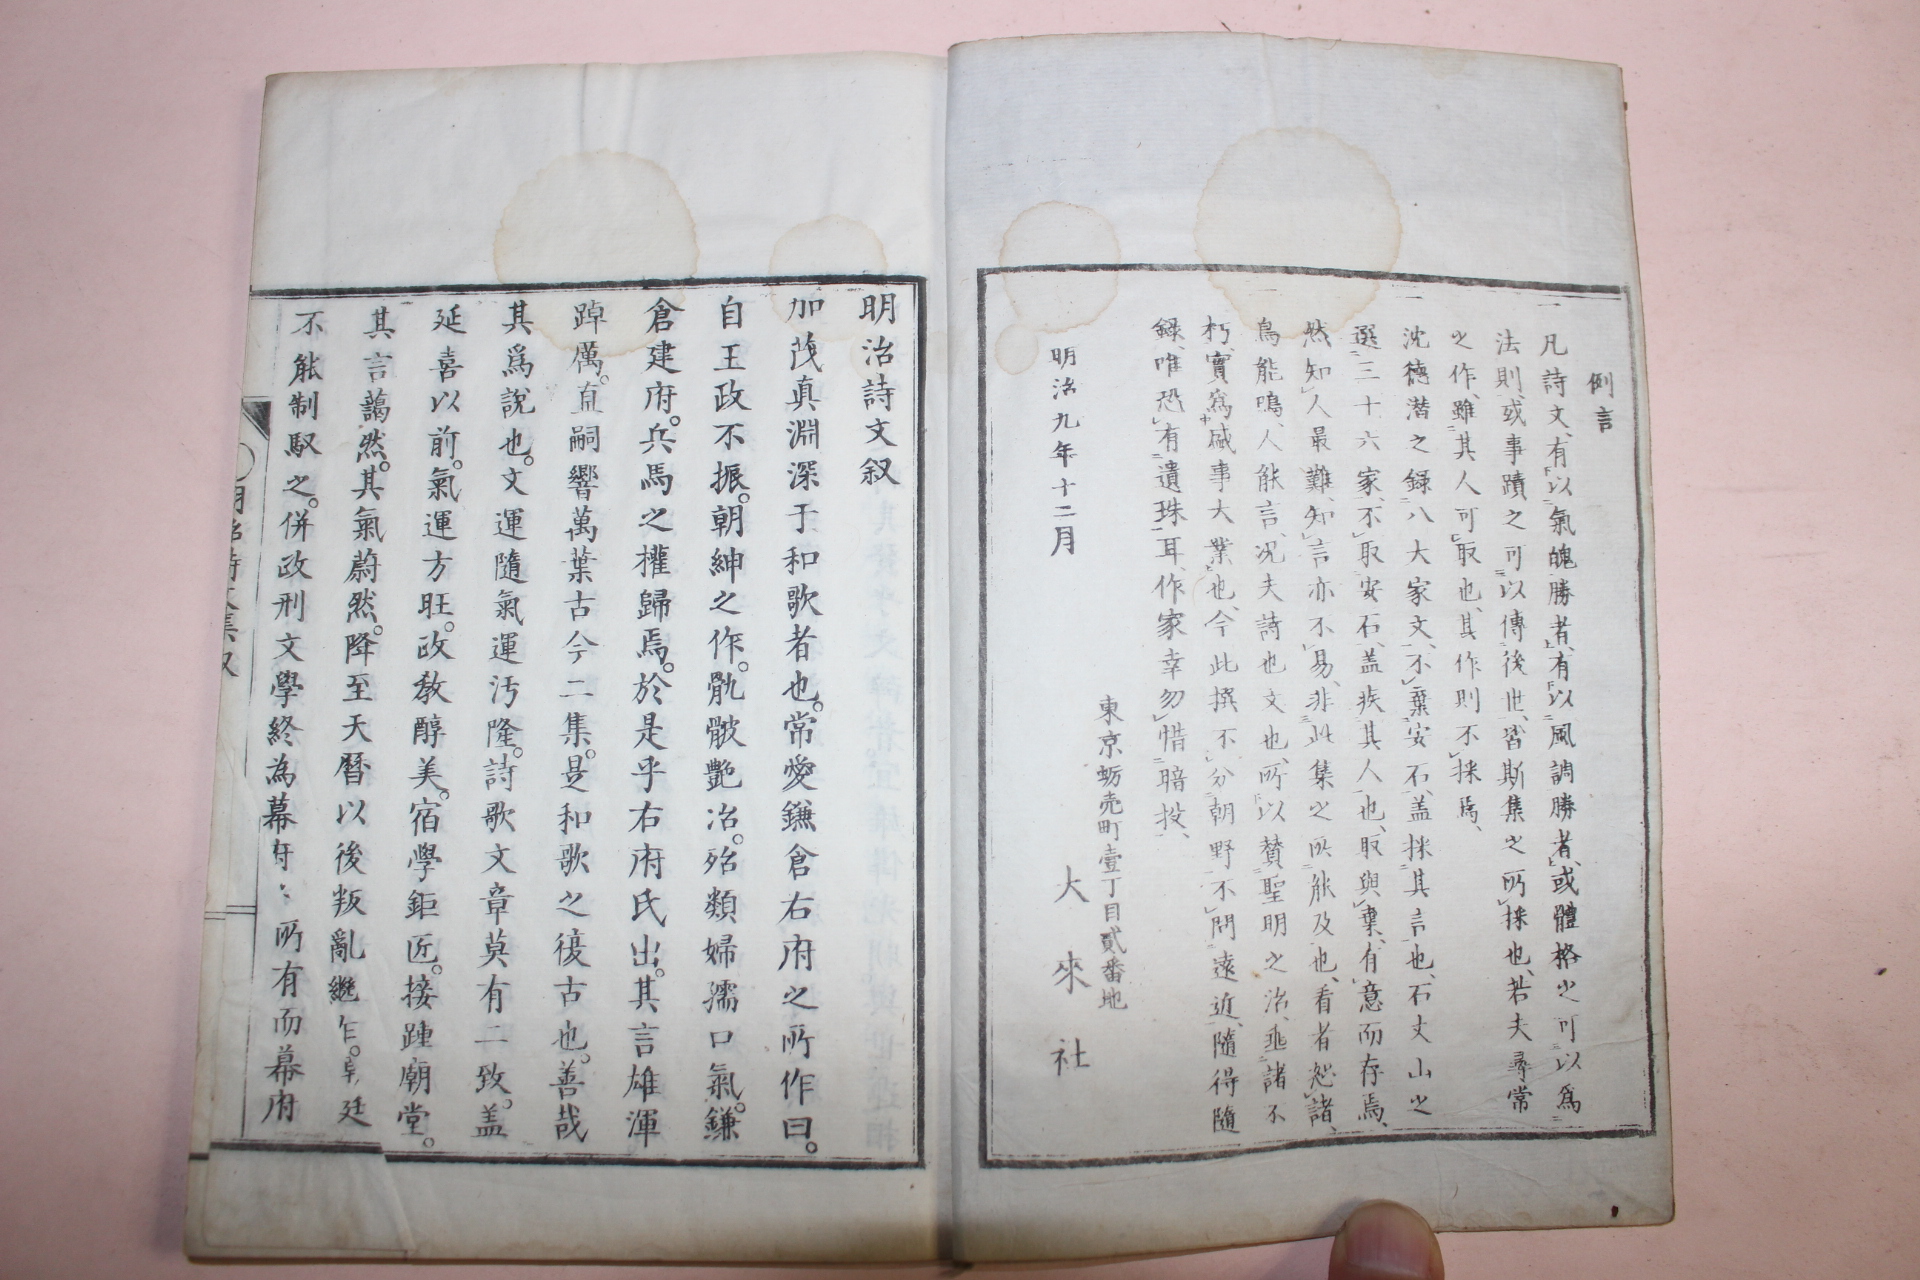 例言
一凡詩文、有以氣魄勝者、有以風調勝者、或體格之可以爲
法則、或事蹟之可以傳後世、皆斯集之所採也、若夫尋常
之作、雖其人可取也、其作則不採焉、
一沈德潜之録八大家文、不棄安石、盖採其言也、石丈山之
選三十六家、不取安石、盖疾其人也、取與棄、有意而存焉、
然知人最難、知言亦不易、非此集之所能及也、看者恕諸、
一鳥能鳴、人能言、况夫詩也文也、所以賛聖明之治、垂諸不
朽、實爲盛事大業也、今此撰不分朝野、不問遠近、隨得隨
録、唯恐有遺珠耳、作家幸勿惜暗投、
明治九年十二月
東京蛎売町壹丁目貳番地
大來社
明治詩文叙
加茂真淵深于和歌者也。常愛鎌倉右府之所作曰。
自王政不振。朝紳之作。骫骳艶冶。殆類婦孺口氣。鎌
倉建府。兵馬之權歸焉。於是乎右府氏出。其言雄渾
踔厲。直嗣響萬葉古今二集。是和歌之復古也。善哉
其爲說也。文運隨氣運汚隆。詩歌文章莫有二致。盖
延喜以前。氣運方旺。政教醇美。宿學鉅匠。接踵廟堂。
其言藹然。其氣蔚然。降至天曆以後叛亂繼乍。朝廷
不能制馭之。併政刑文學終為幕府〻所有而幕府
明治詩文集叙